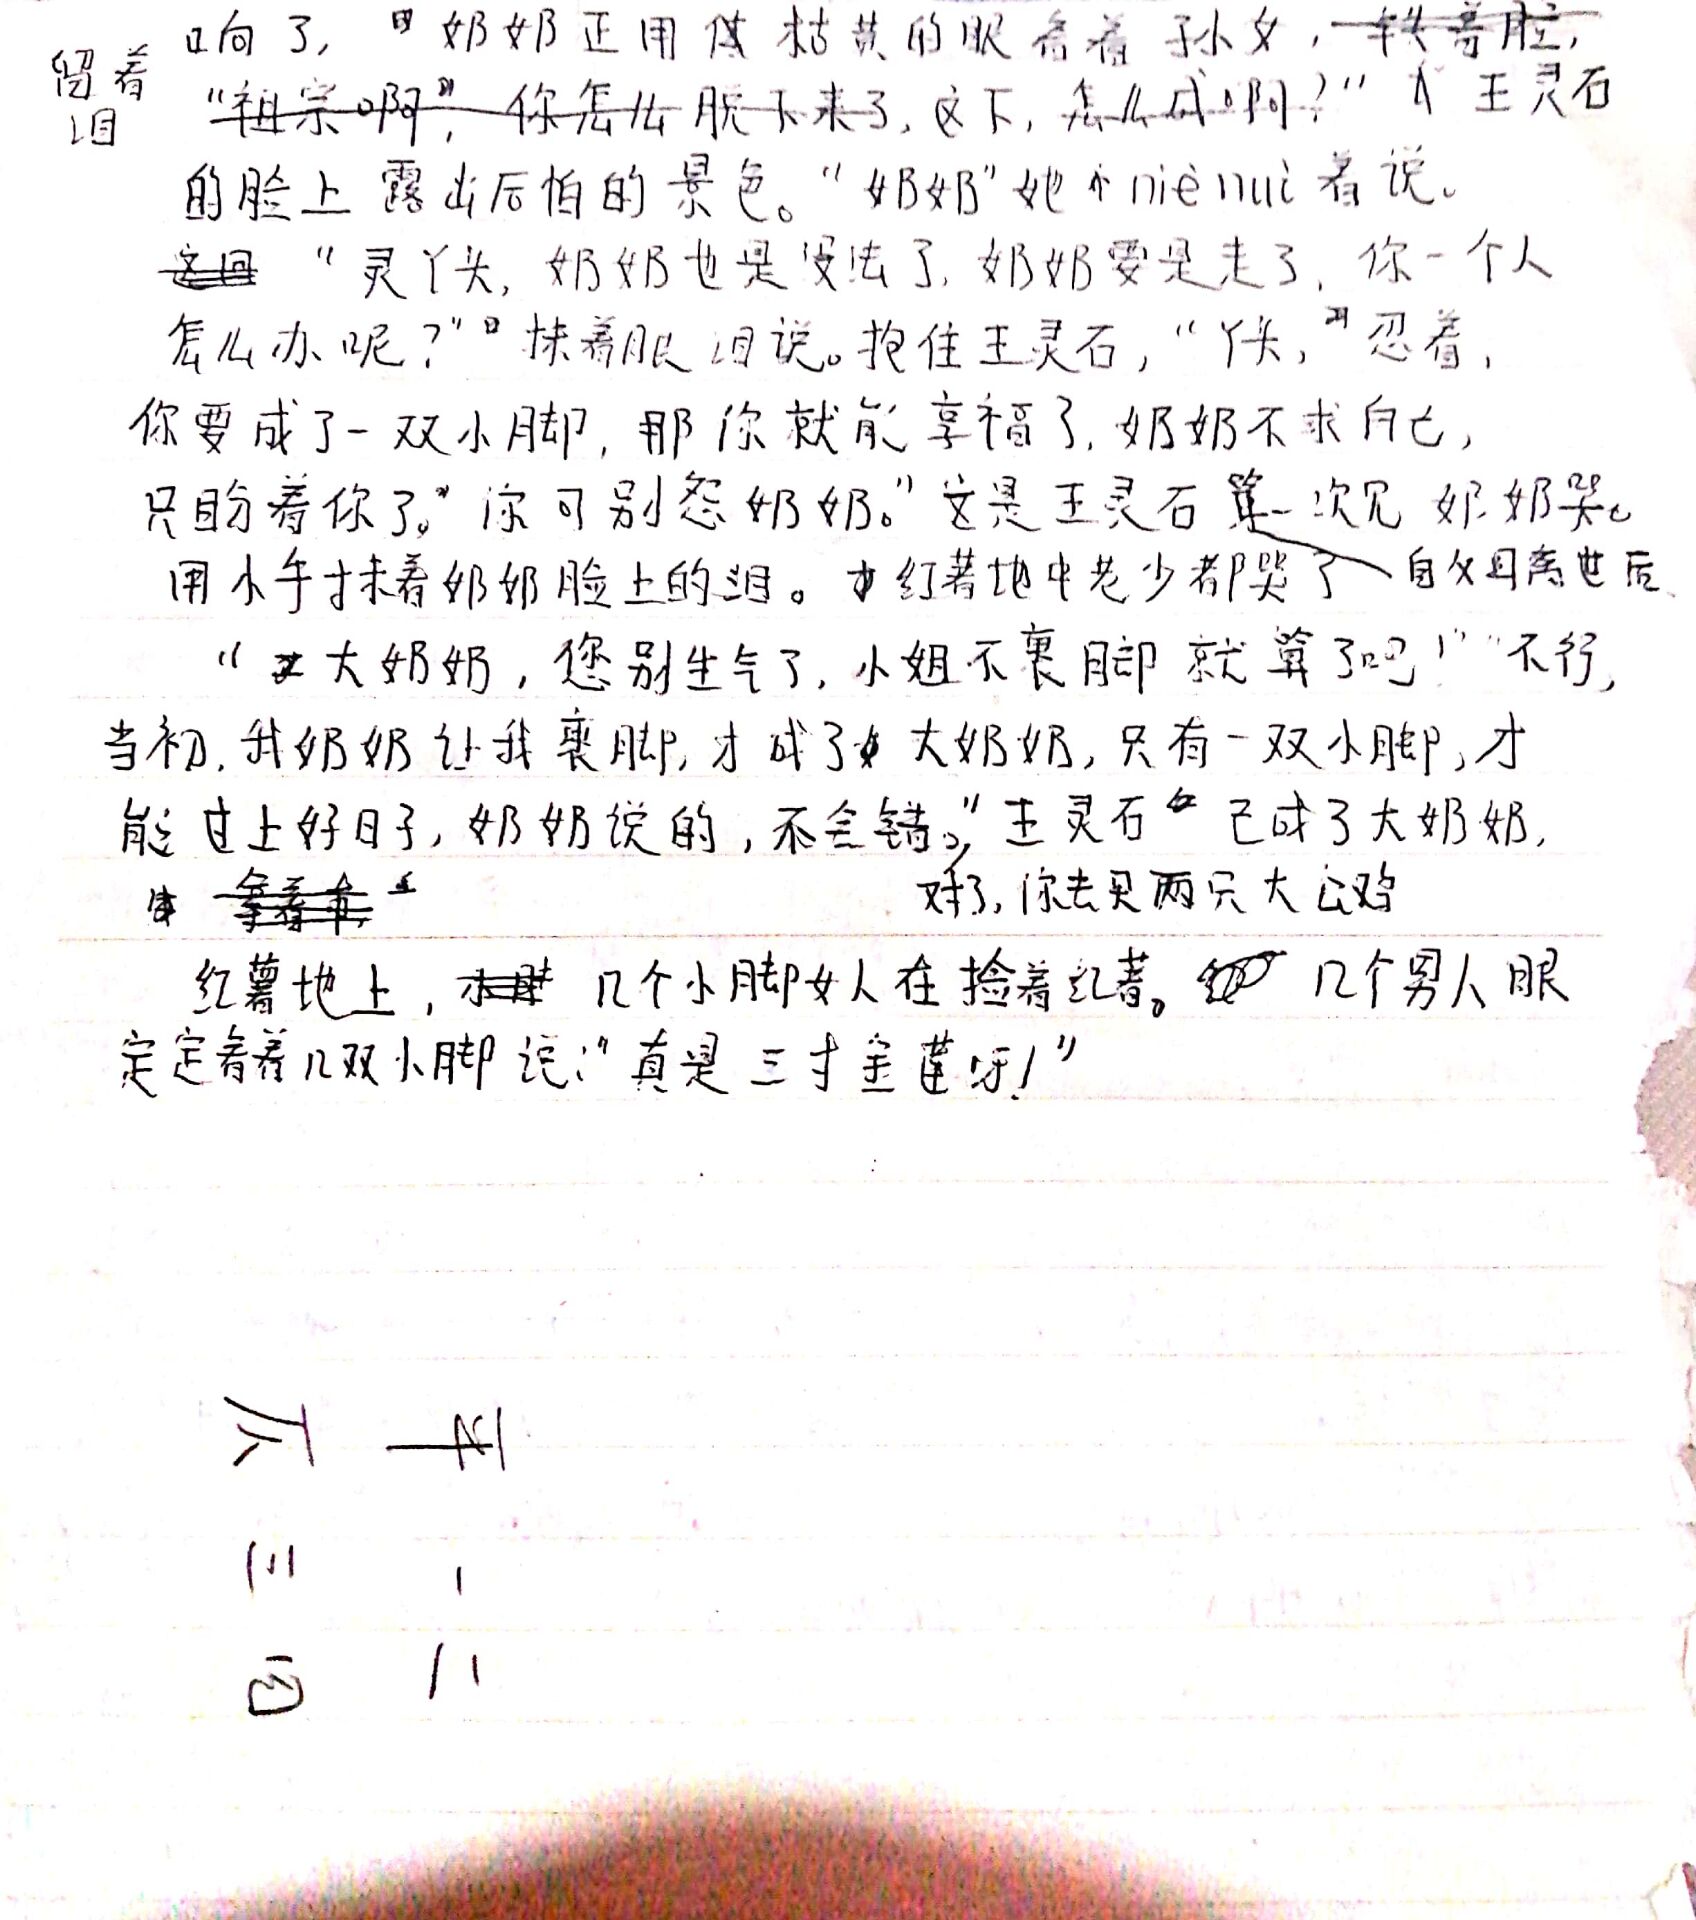 响了，奶奶正用焦枯黄的眼看着孙女，铁着脸，
留着泪
“祖宗啊”，你怎么脱下来了，这下，怎么成啊？” 王灵石
的脸上露出后怕的景色。“奶奶”她niè nuì着说。
这回 “灵丫头，奶奶也是没法了，奶奶要是走了，你一个人
怎么办呢？”抹着眼泪说。抱住王灵石，“丫头，忍着，
你要成了一双小脚，那你就能享福了，奶奶不求自己，
只盼着你了。”你可别怨奶奶。”这是王灵石第一次见奶奶哭。
用小手抹着奶奶脸上的泪。红薯地中老少都哭了 自父母离世后
“大奶奶，您别生气了，小姐不裹脚就算了吧！”“不行，
当初，我奶奶让我裹脚，才成了大奶奶，只有一双小脚，才
能过上好日子，奶奶说的，不会错。”王灵石已成了大奶奶，
拿着 对了，你去买两只大公鸡
红薯地上，几个小脚女人在捡着红薯。几个男人眼
定定看着几双小脚说：“真是三寸金莲呀！”
一 三
二 四